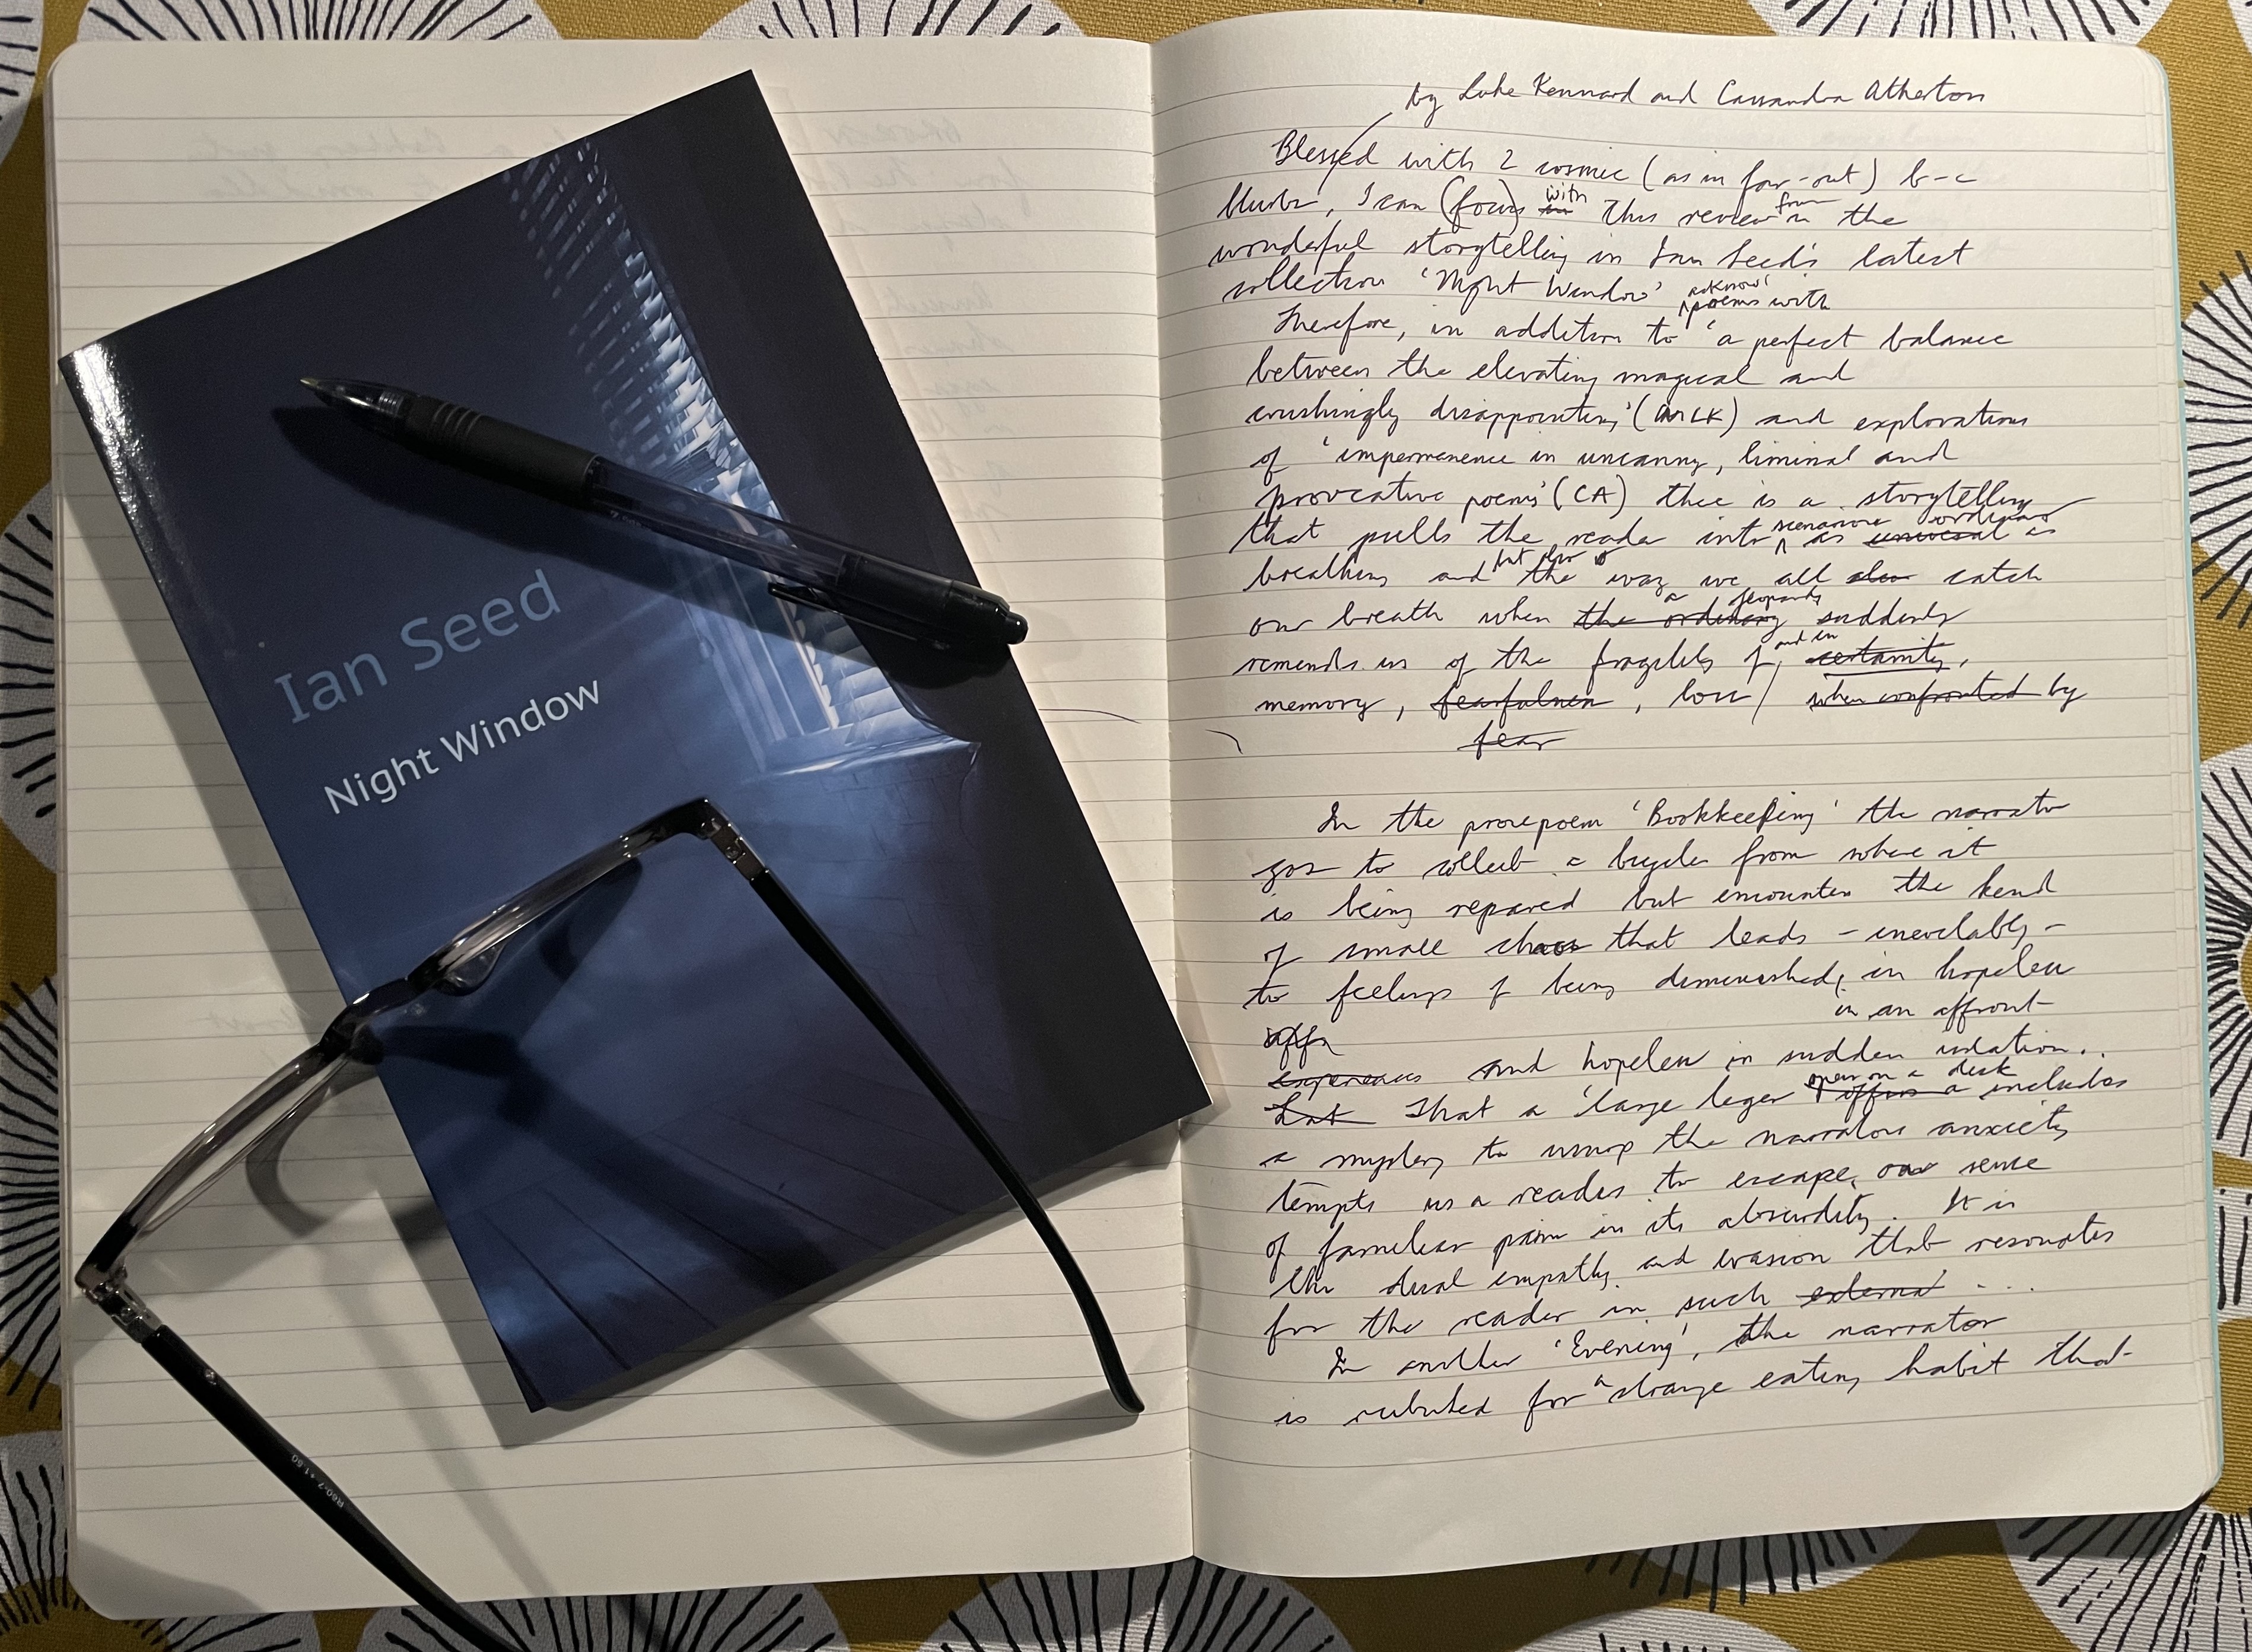 Ian Seed
Night Window
by Luke Kennard and Cassandra Atherton
Blessed with 2 cosmic (as in far-out) b-c
blurbs, I can (focus) with this review from the
wonderful storytelling in Ian Seed's latest
collection 'Night Window'
acknow'
poems with
Therefore, in addition to 'a perfect balance
between the elevating magical and
crushingly disappointing' (LK) and explorations
of 'impermanence in uncanny, liminal and
provocative poems' (CA) there is a storytelling
scenarios ordinary
that pulls the reader into as universal as
but also
breathing and the way we all also catch
a jeopardy
our breath when the ordinary suddenly
and in
reminds us of the fragility of, certainty,
memory, fearfulness, loss / when confronted by
fear
In the prosepoem 'Bookkeeping' the narrator
goes to collect a bicycle from where it
is being repaired but encounters the kind
of small chaos that leads - inevitably -
to feelings of being diminished, in hopeless
in an affront
affr
experiences and hopeless in sudden isolation..
open on a desk
that That a 'large leger offers a includes
a mystery to usurp the narrators anxiety
tempts us a reader to escape, our sense
of familiar pain in its absurdity. It is
this dual empathy and evasion that resonates
for the reader in such external ...
In another 'Evening', the narrator
is rebuked for a strange eating habit that
R60-7 +1.50